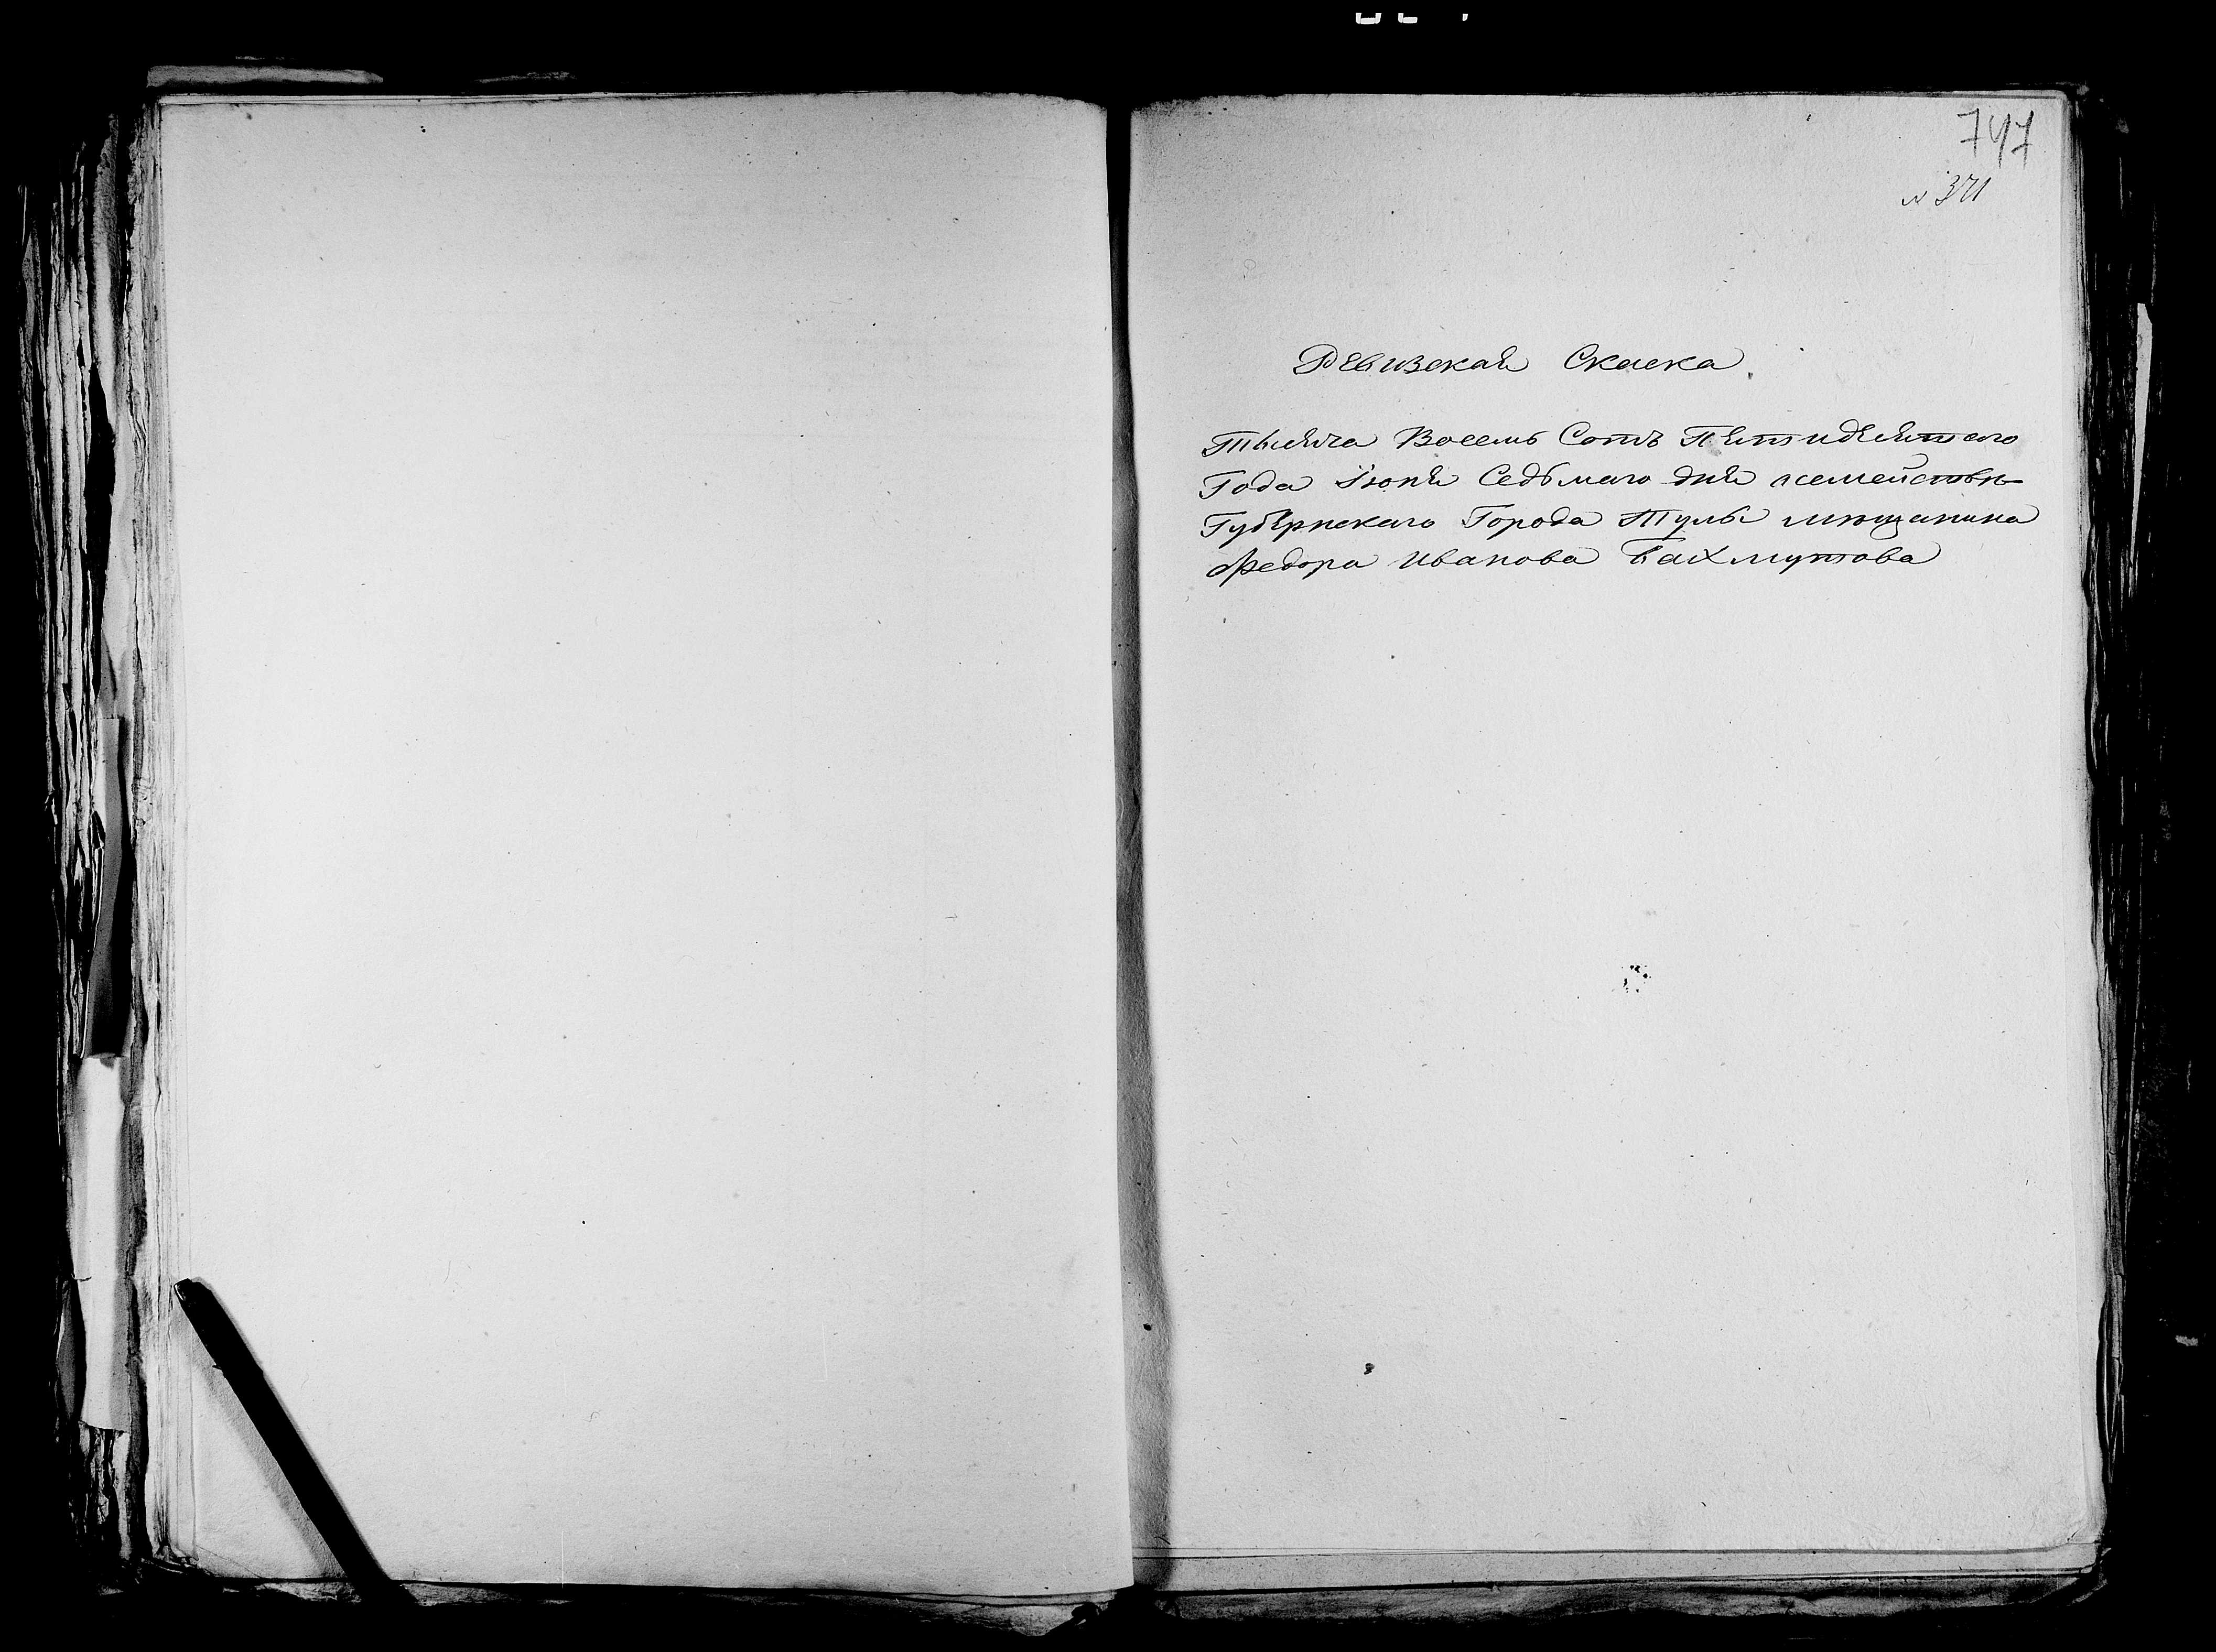 747
№ 371
Ревизская Скаска
Тысяча Восемь Сотъ Пятидесятаго
Года Іюня Седьмаго дня осемействѣ
Губернскаго Города Тулы мѣщанина
Федора Иванова Бахмутова